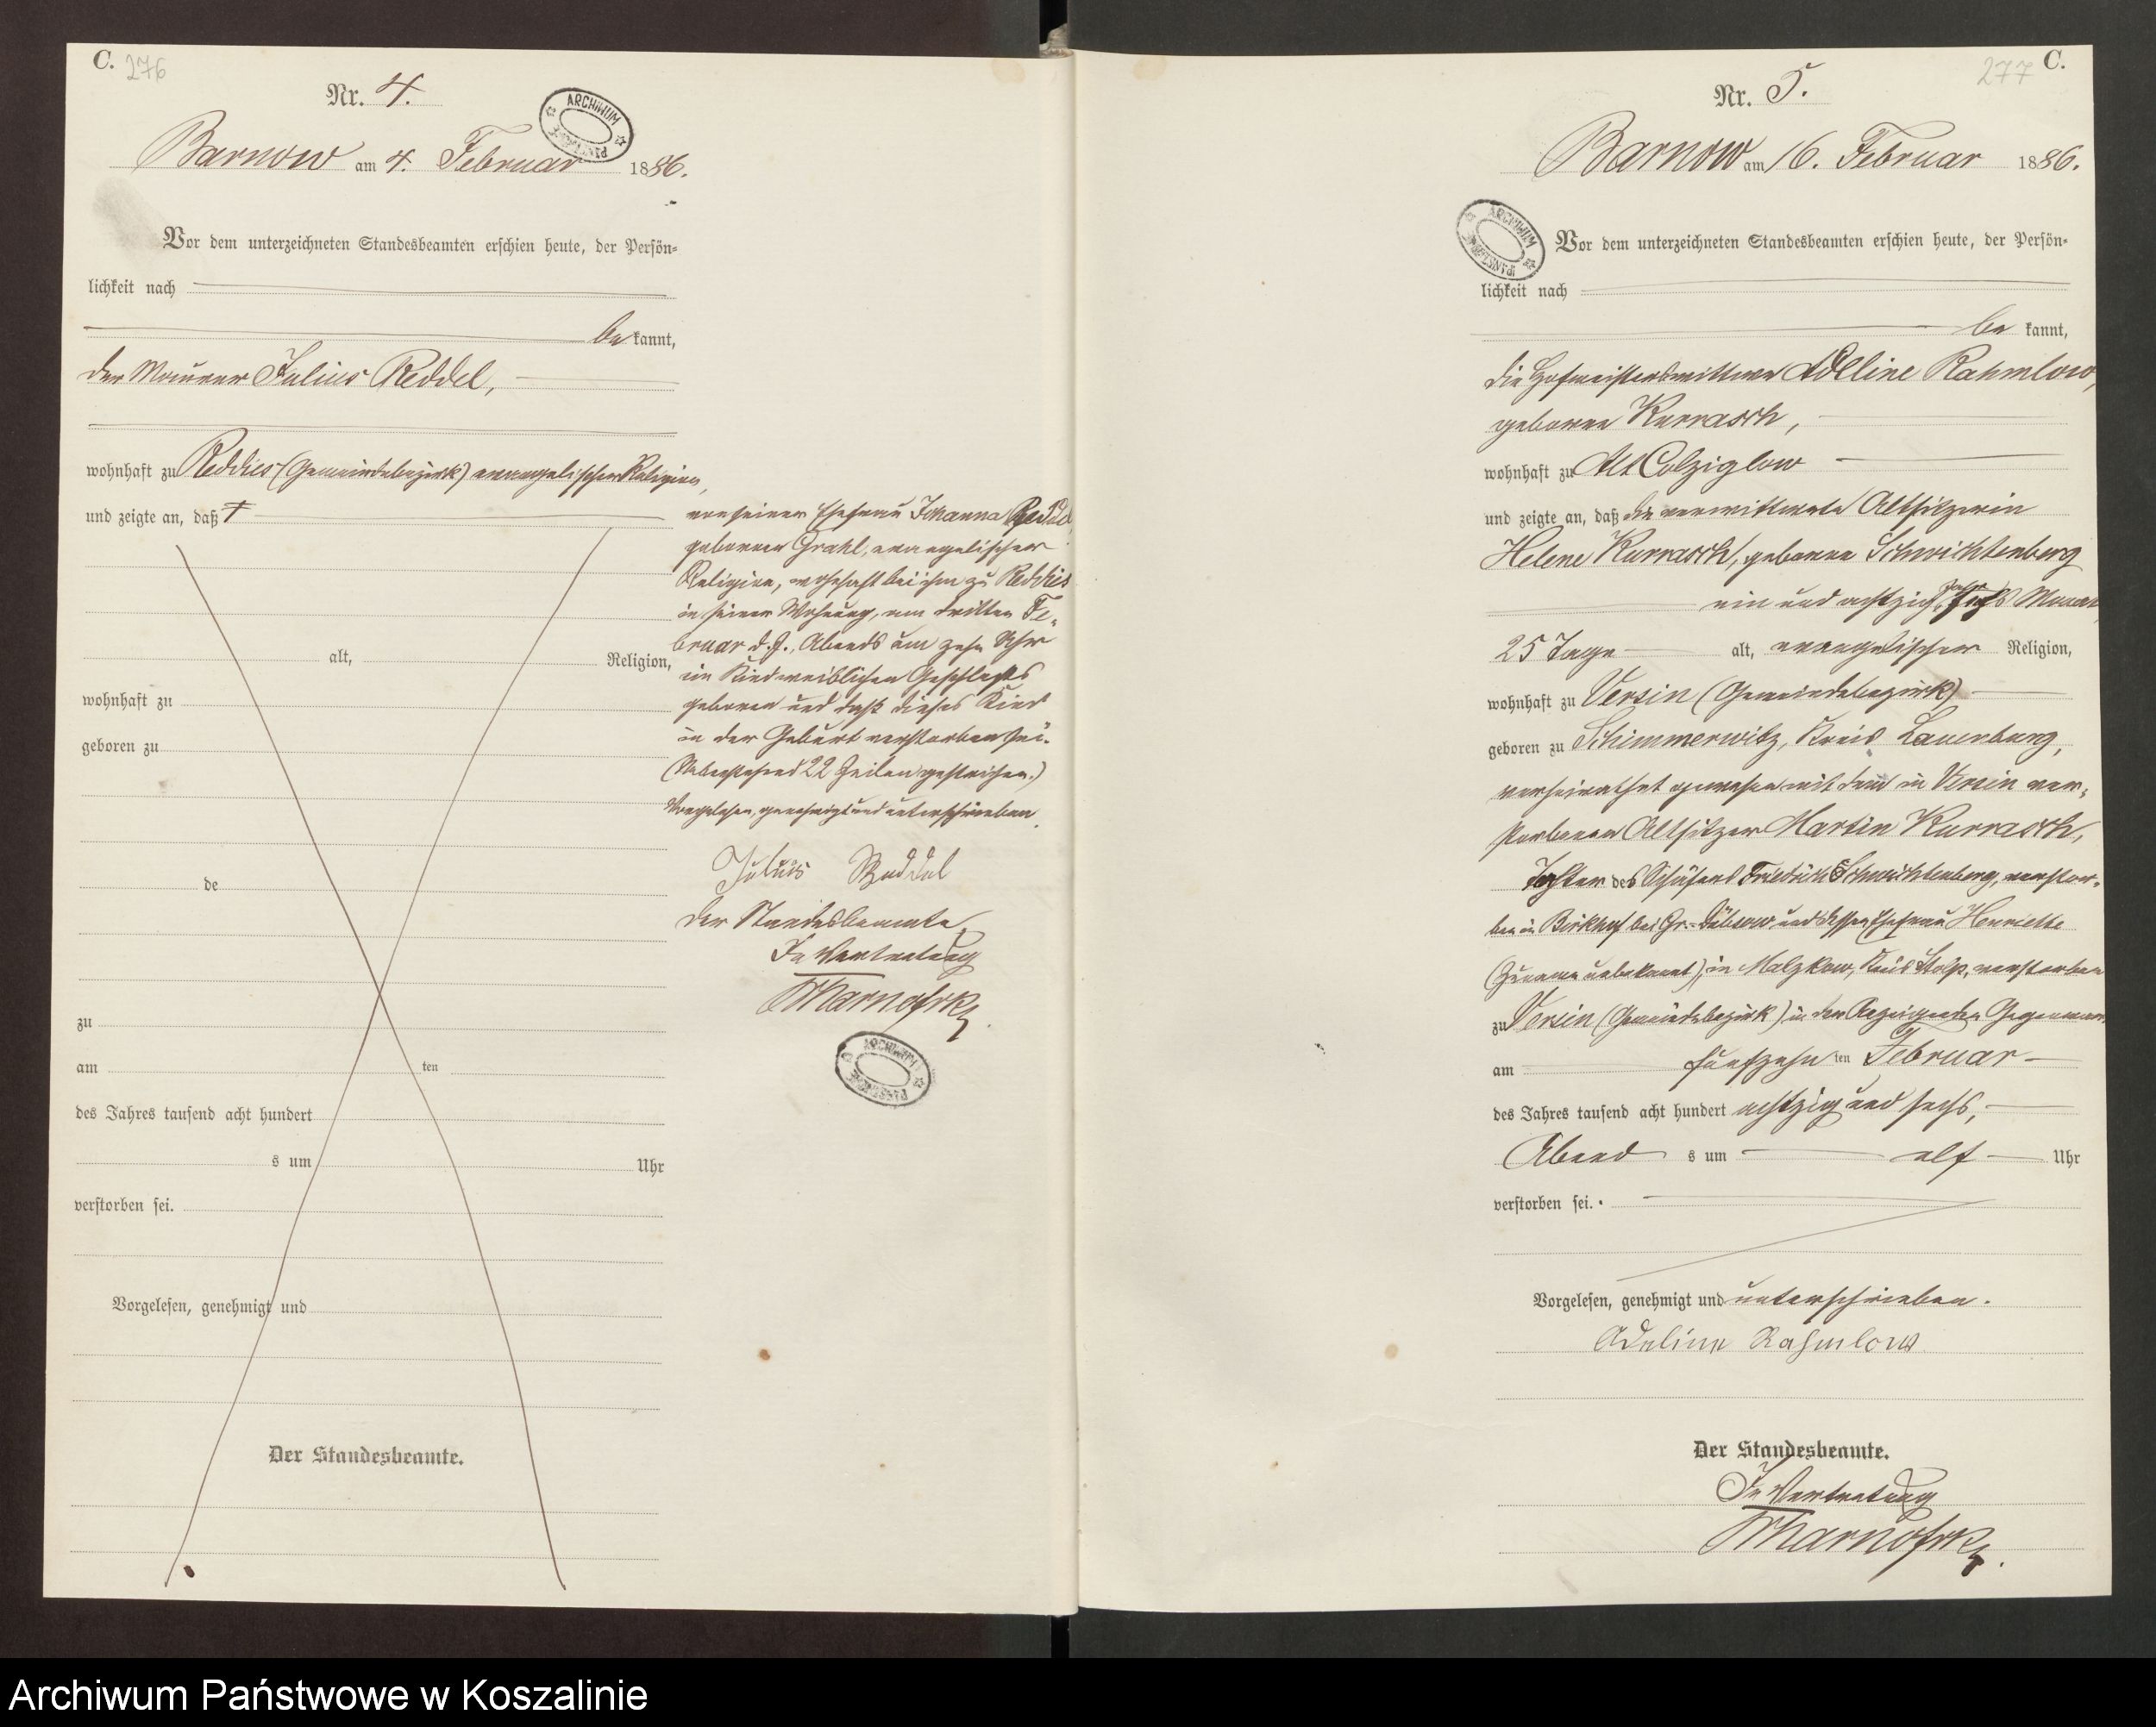 C. 276
Nr. 4.
ARCHIWUM PAŃSTWOWE
Barnow am 4. Februar 1886.
Vor dem unterzeichneten Standesbeamten erschien heute, der Persön-
lichkeit nach
be kannt,
der Maurer Julius Reddel,
wohnhaft zu Reddies (Gemeindebezirk) evangelischer Religion,
und zeigte an, daß
von seiner Ehefrau Johanna Reddel
geborenen Grahl, evangelischer
Religion, wohnhaft bei ihm zu Reddies
in seiner Wohnung, am dritten Fe-
bruar d. J., Abends um zehn Uhr
ein Kind weiblichen Geschlechts
geboren und daß dieses Kind
in der Geburt verstorben sei.
(Nebenstehend 22 Zeilen gestrichen.)
Vorgelesen, genehmigt und unterschrieben.
Julius Reddel
Der Standesbeamte
In Vertretung
ARCHIWUM PAŃSTWOWE
alt, Religion,
wohnhaft zu
geboren zu
de
zu
am ten
des Jahres tausend acht hundert
s um Uhr
verstorben sei.
Vorgelesen, genehmigt und
Der Standesbeamte.
277 C.
Nr. 5.
Barnow am 16. Februar 1886.
ARCHIWUM PAŃSTWOWE
Vor dem unterzeichneten Standesbeamten erschien heute, der Persön-
lichkeit nach
be kannt,
die Hofmeisterwittwe Adeline Rahmlow,
geborene Kurrasch,
wohnhaft zu Alt Colziglow
und zeigte an, daß die verwittwete Altsitzerin
Helene Kurrasch, geborene Schwichtenberg
ein und achtzig Jahre, sechs Monat
25 Tage alt, evangelischer Religion,
wohnhaft zu Versin (Gemeindebezirk)
geboren zu Schimmerwitz, Kreis Lauenburg,
verheirathet gewesen mit dem in Versin ver-
storbenen Altsitzer Martin Kurrasch,
Tochter des Schäfers Friedrich Schwichtenberg, verstor-
ben in Birkhof bei Gr. Dübsow und dessen Ehefrau Henriette
(Zuname unbekannt), in Malzkow, Kreis Stolp, verstorben
zu Versin (Gemeindebezirk) in der Anzeigenden Gegenwart
am fünfzehn ten Februar
des Jahres tausend acht hundert achtzig und sechs,
Abend s um elf Uhr
verstorben sei.
Vorgelesen, genehmigt und unterschrieben.
Adeline Rahmlow
Der Standesbeamte.
In Vertretung
Archiwum Państwowe w Koszalinie